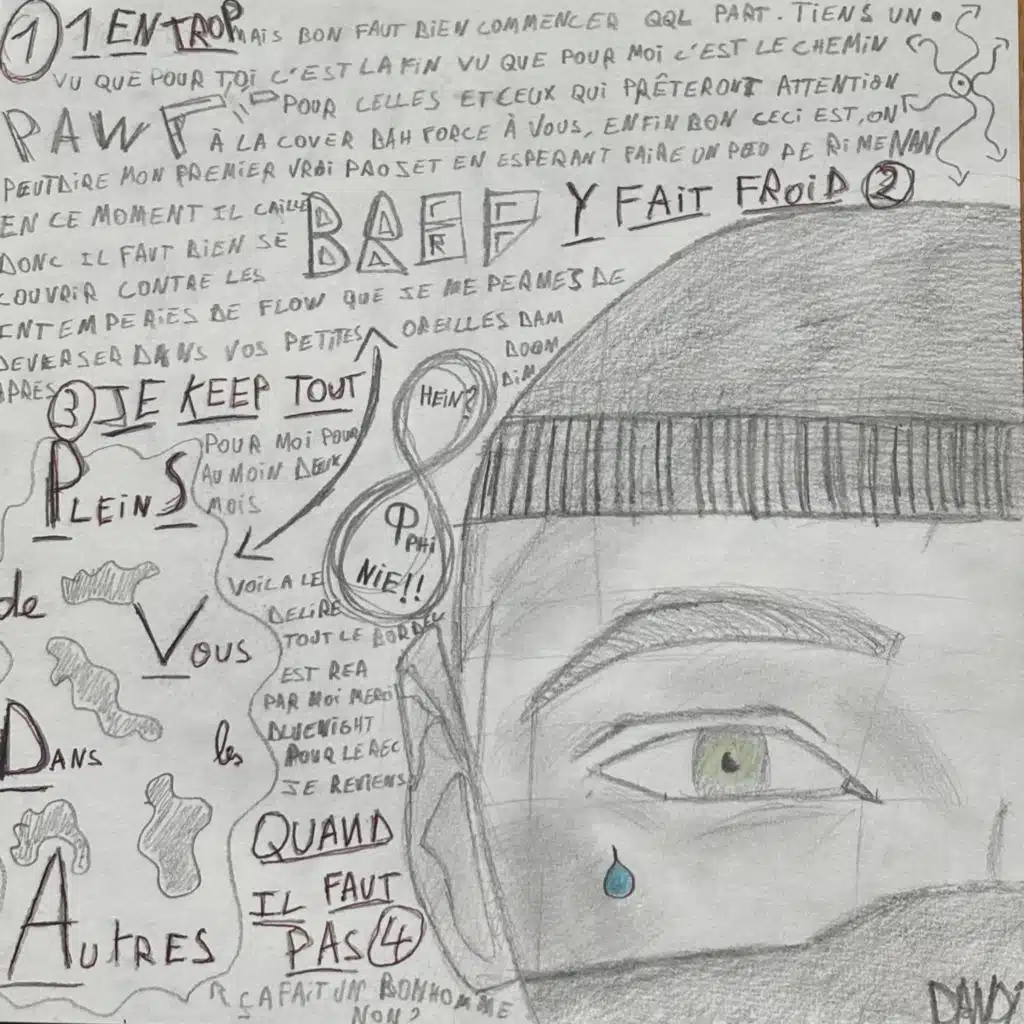 ① 1 EN TROP MAIS BON FAUT BIEN COMMENCER QQL PART. TIENS UN •
VU QUE POUR TOI C'EST LA FIN VU QUE POUR MOI C'EST LE CHEMIN
PAWF POUR CELLES ET CEUX QUI PRÊTERONT ATTENTION
À LA COVER BAH FORCE À VOUS, ENFIN BON CECI EST, ON
PEUT DIRE MON PREMIER VRAI PROJET EN ESPERANT FAIRE UN PEU DE RIMENAN
EN CE MOMENT IL CAILLE BREF Y FAIT FROID ②
DONC IL FAUT BIEN SE
COUVRIR CONTRE LES
INTEMPERIES DE FLOW QUE JE ME PERMES DE
DEVERSER DANS VOS PETITES OREILLES DAM
DOOM
DIM
APRES ③ JE KEEP TOUT
POUR MOI POUR
AU MOIN DEUX
MOIS
HEIN?
Φ
PHI
NIE!!
PLEINS
de
VOUS
DANS les
AUTRES
VOILA LE
DELIRE
TOUT LE BORDEL
EST REA
PAR MOI MERCI
BLUENIGHT
POUR LE REC
JE REVIENS
QUAND
IL FAUT
PAS ④
ÇA FAIT UN BONHOMME
NON?
DANDI